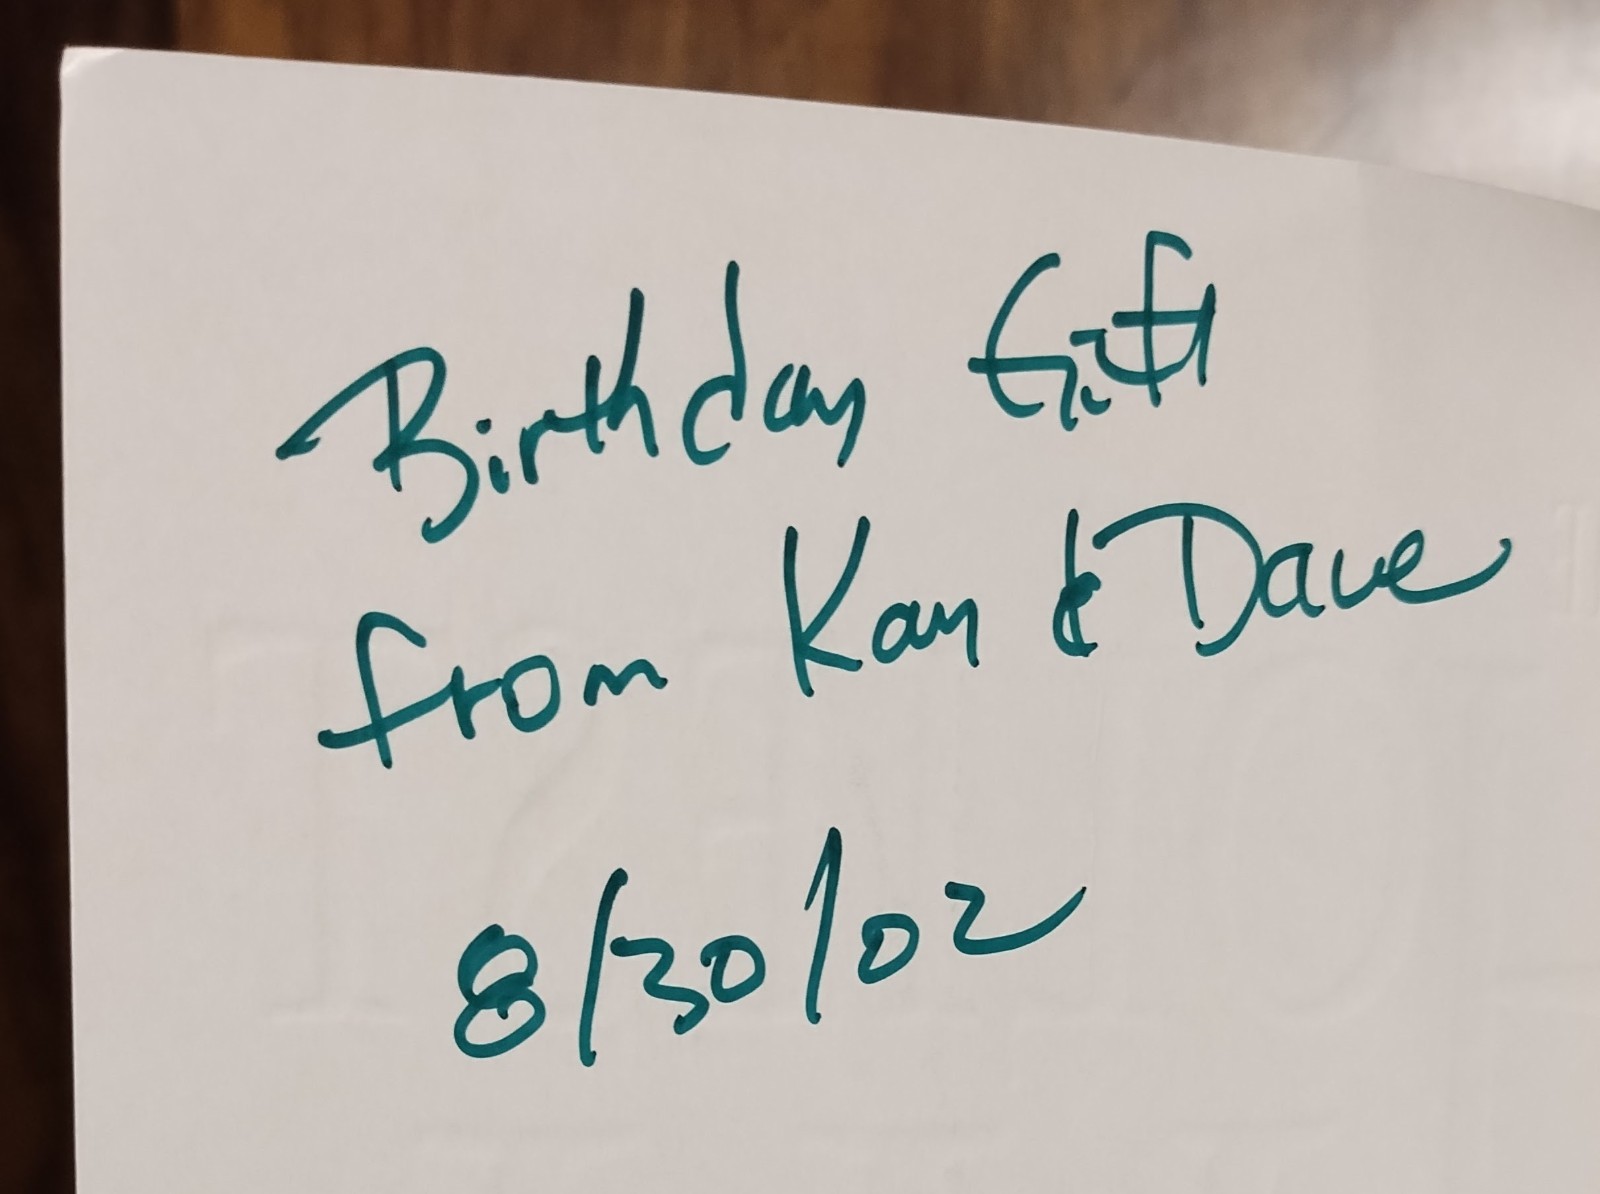 Birthday Gift
from Kay & Dave
8/30/02